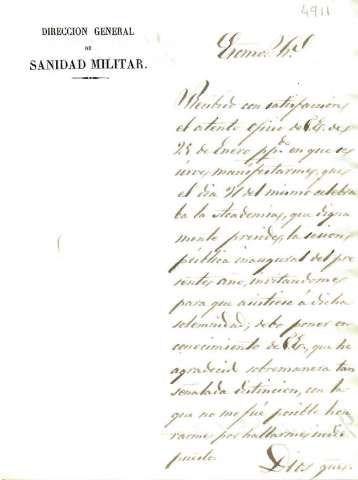 4911
DIRECCION GENERAL
DE
SANIDAD MILITAR.
Excmo. Sr.
Recibido con satisfaccion
el atento oficio de V.E. de
25 de Enero ppdo en que se
sirve manifestarme, que
el dia 31 del mismo celebra
ba la Academia, que digna
mente preside, la sesion
pública inaugural del pre
sente año, invitandome
para que asistiese á dicha
solemnidad; debo poner en
conocimiento de V.E. que he
agradecido sobremanera tan
señalada distincion, con la
que no me fué posible hon
rarme por hallarme indis
puesto.
Dios gue.